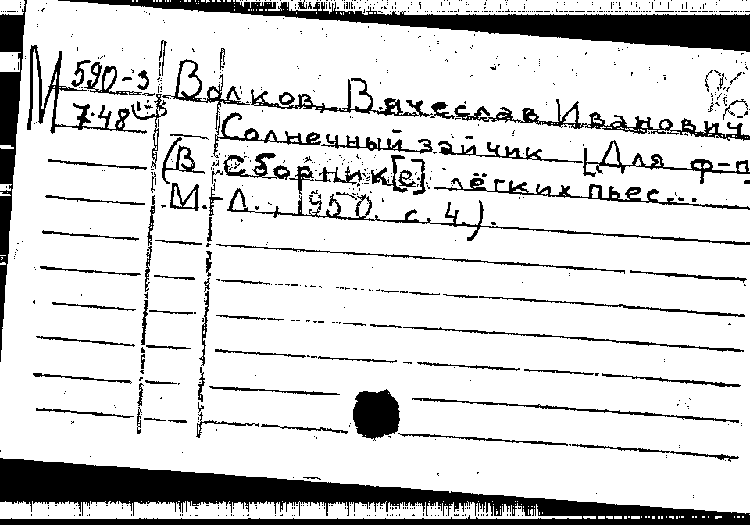 М 590-3 Волков, Вячеслав Иванович
7.48
Солнечный зайчик [Для ф-п
(В Сборник[е] лёгких пьес...
М.-Л., 1950. с. 4).